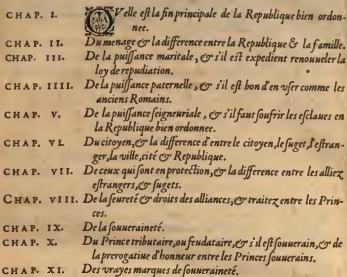 CHAP. I. QVelle eſt la fin principale de la Republique bien ordon-
nee.
CHAP. II. Du menage & la difference entre la Republique & la famille.
CHAP. III. De la puiſſance maritale, & s'il eſt expedient renouueler la
loy de repudiation.
CHAP. IIII. De la puiſſance paternelle, & s'il eſt bon d'en vſer comme les
anciens Romains.
CHAP. V. De la puiſſance ſeigneuriale, & s'il faut ſoufrir les eſclaues en
la Republique bien ordonnee.
CHAP. VI. Du citoyen, & la difference d'entre le citoyen, le ſuget, l'eſtran-
ger, la ville, cité & Republique.
CHAP. VII. De ceux qui ſont en protection, & la difference entre les alliez
eſtrangers, & ſugets.
CHAP. VIII. De la ſeureté & droits des alliances, & traitez entre les Prin-
ces.
CHAP. IX. De la ſouueraineté.
CHAP. X. Du Prince tributaire, ou feudataire, & s'il eſt ſouuerain, & de
la prerogatiue d'honneur entre les Princes ſouuerains.
CHAP. XI. Des vrayes marques de ſouueraineté.